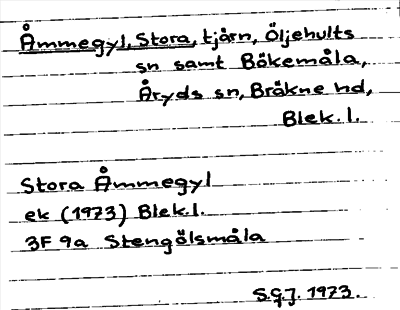 Åmmegyl, Stora, tjärn, Öljehults
sn samt Bökemåla,
Åryds sn, Bräkne hd,
Blek. l.
Stora Åmmegyl
ek (1973) Blek.l.
3F 9a Stengölsmåla
S.G.J. 1973.